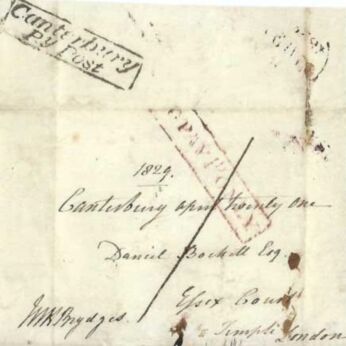 Canterbury
Py Post
1829.
Canterbury april twenty one
Daniel Bockett Esq.
Essex Court
Temple
London